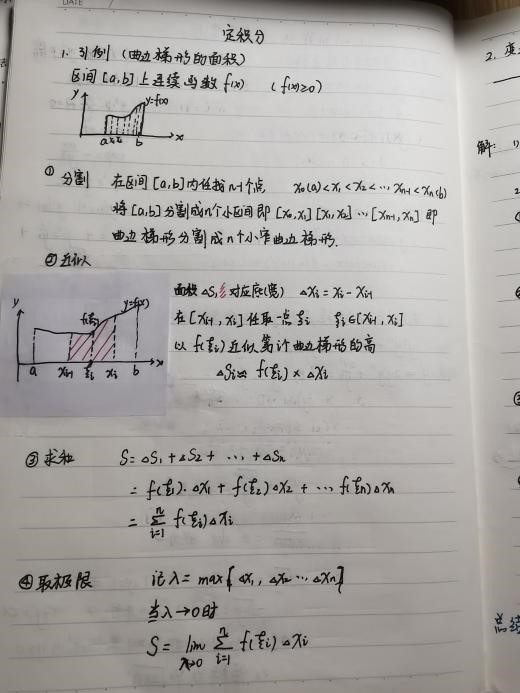 DATE
定积分
1. 引例 (曲边梯形的面积)
区间 [a,b] 上连续函数 f(x) (f(x)≥0)
y y=f(x)
a x₁ x₂ b x
① 分割 在区间 [a,b] 内任找 n-1 个点, x₀(a)<x₁<x₂<…xₙ₋₁<xₙ(b)
将 [a,b] 分割成 n 个小区间 即 [x₀,x₁] [x₁,x₂] … [xₙ₋₁,xₙ] 即
曲边梯形分割成 n 个小窄曲边梯形.
② 近似
y f(ξᵢ) y=f(x)
a xᵢ₋₁ ξᵢ xᵢ b x
面积 △Sᵢ 对应底(宽) △xᵢ = xᵢ - xᵢ₋₁
在 [xᵢ₋₁, xᵢ] 任取一点 ξᵢ ξᵢ∈[xᵢ₋₁, xᵢ]
以 f(ξᵢ) 近似第 i 个曲边梯形的高
△Sᵢ ≈ f(ξᵢ) × △xᵢ
③ 求和 S = △S₁ + △S₂ + … + △Sₙ
= f(ξ₁)·△x₁ + f(ξ₂)△x₂ + … f(ξₙ)△xₙ
= ∑ᵢ₌₁ⁿ f(ξᵢ)△xᵢ
④ 取极限 记 λ = max{△x₁, △x₂ … △xₙ}
当 λ→0 时
S = lim_{λ→0} ∑ᵢ₌₁ⁿ f(ξᵢ)△xᵢ
2. 变
解: 1)
总结